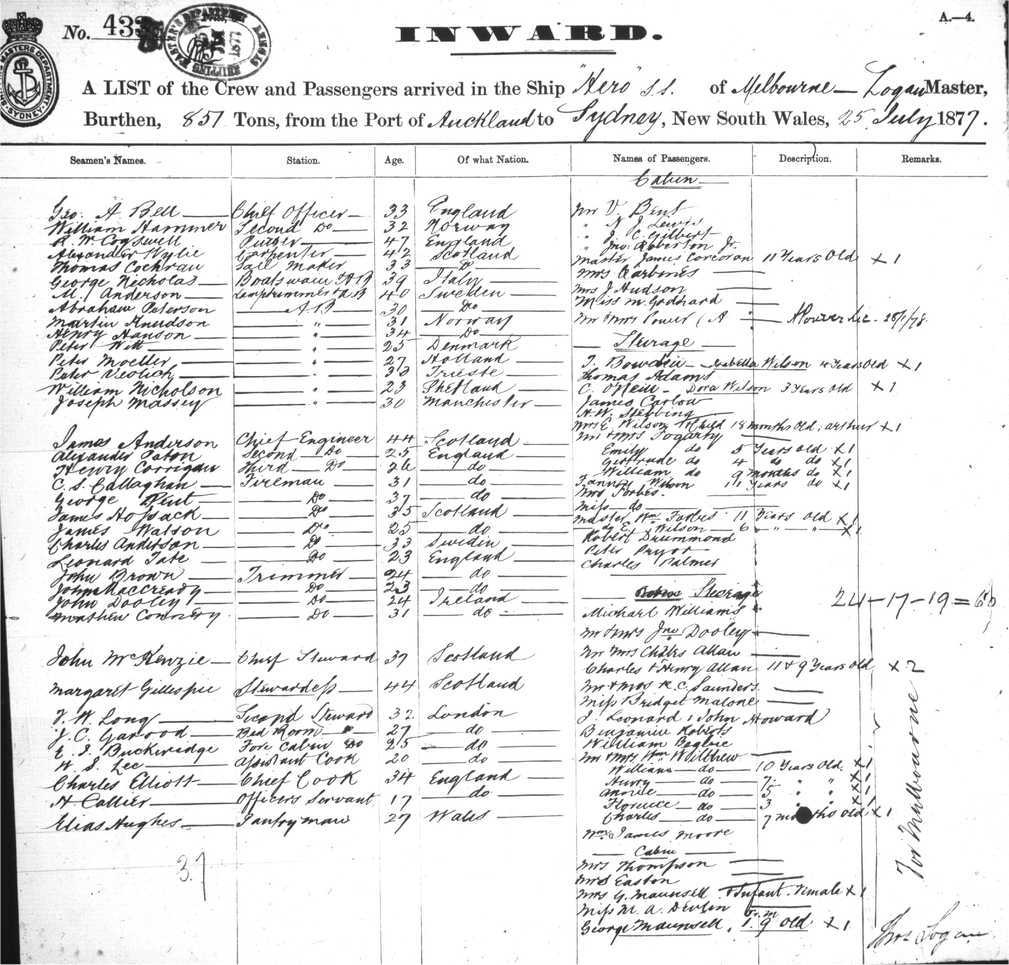 No. 433
INWARD.
A.—4.
SHIPPING MASTER'S DEPARTMENT 1877
SHIPPING MASTERS DEPARTMENT SYDNEY
A LIST of the Crew and Passengers arrived in the Ship "Hero" s.s. of Melbourne — Logan Master,
Burthen, 851 Tons, from the Port of Auckland to Sydney, New South Wales, 25 July 1877.
Seamen's Names. Station. Age. Of what Nation. Names of Passengers. Description. Remarks.
Cabin
Geo. A Bell Chief Officer 33 England Mr V. Bent
William Hammer Second Do 32 Norway " A J Lewis
R. W. Cogswell Purser 47 England " J. C. Gilbert
Alexander Wylie Carpenter 42 Scotland " Jno. Roberton Jr.
Thomas Cochran Sail Maker 33 Do Master James Corcoran 11 Years Old x 1
George Nicholas Boatswain & AB 39 Italy Mrs
M. Anderson Lamptrimmer & AB 40 Sweden Mrs J. Hudson
Abraham Peterson AB 30 Do Miss M. Goddard
Martin Knudson " 31 Norway Mr & Mrs Power (A
Henry Hanson " 34 Do
Peter Witt " 25 Denmark Steerage
Peter Moeller " 27 Holland T. Bowden Isabella Wilson 4 Years Old x 1
Peter " Trieste Thomas Adams
William Nicholson " 23 Shetland C. O'Neill Dora Wilson 3 Years Old x 1
Joseph Massey " 30 Manchester James Carlow
H. W. Stebbing
Mrs E. Wilson & Child 18 months Old, Arthur x 1
James Anderson Chief Engineer 44 Scotland Mr & Mrs Fogarty
Alexander Paton Second Do 25 England Emily do 5 Years Old x 1
Henry Corrigan Third Do 26 do Gertrude do 4 do do x 1
C. S. Callaghan Fireman 31 do William do 9 Months do x 1
George Kent Do 37 do Fanny Wilson 11 Years do x 1
James Hossack Do 35 Scotland Mrs Forbes
James Watson Do 25 do Miss do
Charles Anderson Do 33 Sweden Master Wm Forbes 11 Years old x 1
Leonard Tate Do 23 England E. Wilson 6 " " x 1
John Brown Trimmer 24 do Robert Drummond
John MacCready Do 23 do Peter Pryor
John Dooley Do 24 Ireland Charles Palmer
Connery Do 31 do
Steerage
24-17-19=60
Michael Williams
Mr & Mrs Jno Dooley
Mr Mrs Charles Allan
John McKenzie Chief Steward 37 Scotland Charles & Henry Allan 11 & 9 Years old x 2
Margaret Gillespie Stewardess 44 Scotland Mr & Mrs R. C. Saunders
Miss Bridget Malone
T. W. Long Second Steward 32 London J. Leonard, John Howard
J. C. Garood Bed Room " 27 do Benjamin Roberts
E. J. Buckeridge Fore Cabin Do 25 do William
W. S. Lee Assistant Cook 20 do Mr & Mrs Wm Willthew
Charles Elliott Chief Cook 34 England William do 10 Years Old x 1
H. Collier Officers Servant 17 do Henry do 7 " " x 1
Elias Hughes Pantryman 27 Wales Annie do 5 " " x 1
Florence do 3 " " x 1
Charles do 7 months old x 1
Wm James Moore
37
Cabin
Mrs Thompson
Mrs Easton
Mrs G. Maunsell & Infant. Female x 1
Miss M. A. Devlin
George Maunsell, 1. 9 old x 1
For Melbourne
Thos Logan